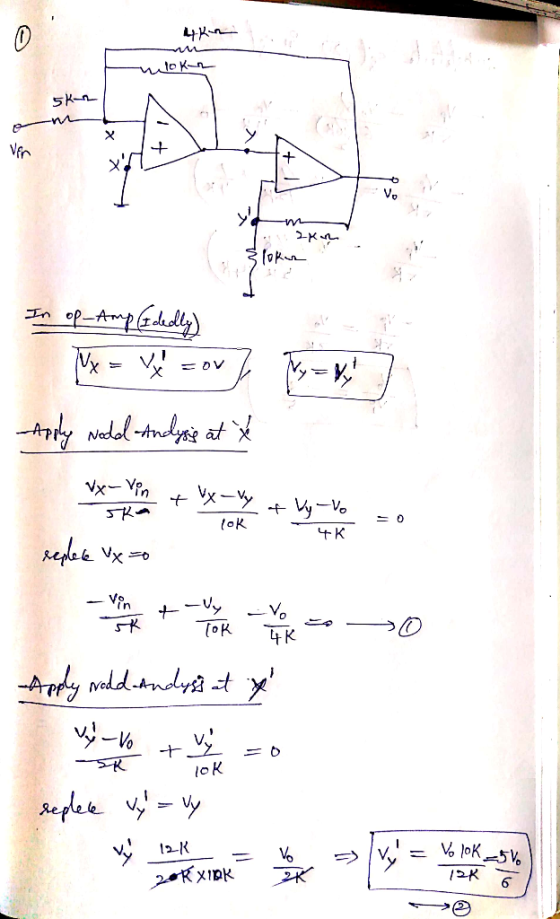 ①
4K-Ω
10K-Ω
5K-Ω
Vin
X
-
+
X'
Y
+
-
Vo
Y'
2K-Ω
10K-Ω
In op-Amp (Ideally)
Vx = Vx' = 0V
Vy = Vy'
Apply Nodal Analysis at 'x'
Vx-Vin/5K + Vx-Vy/10K + Vy-Vo/4K = 0
replace Vx=0
-Vin/5K + -Vy/10K - Vo/4K = 0 → ①
Apply Nodal Analysis at y'
Vy'-Vo/2K + Vy'/10K = 0
replace Vy' = Vy
Vy' 12K/20K×10K = Vo/2K ⇒ Vy' = Vo 10K/12K = 5Vo/6
→ ②